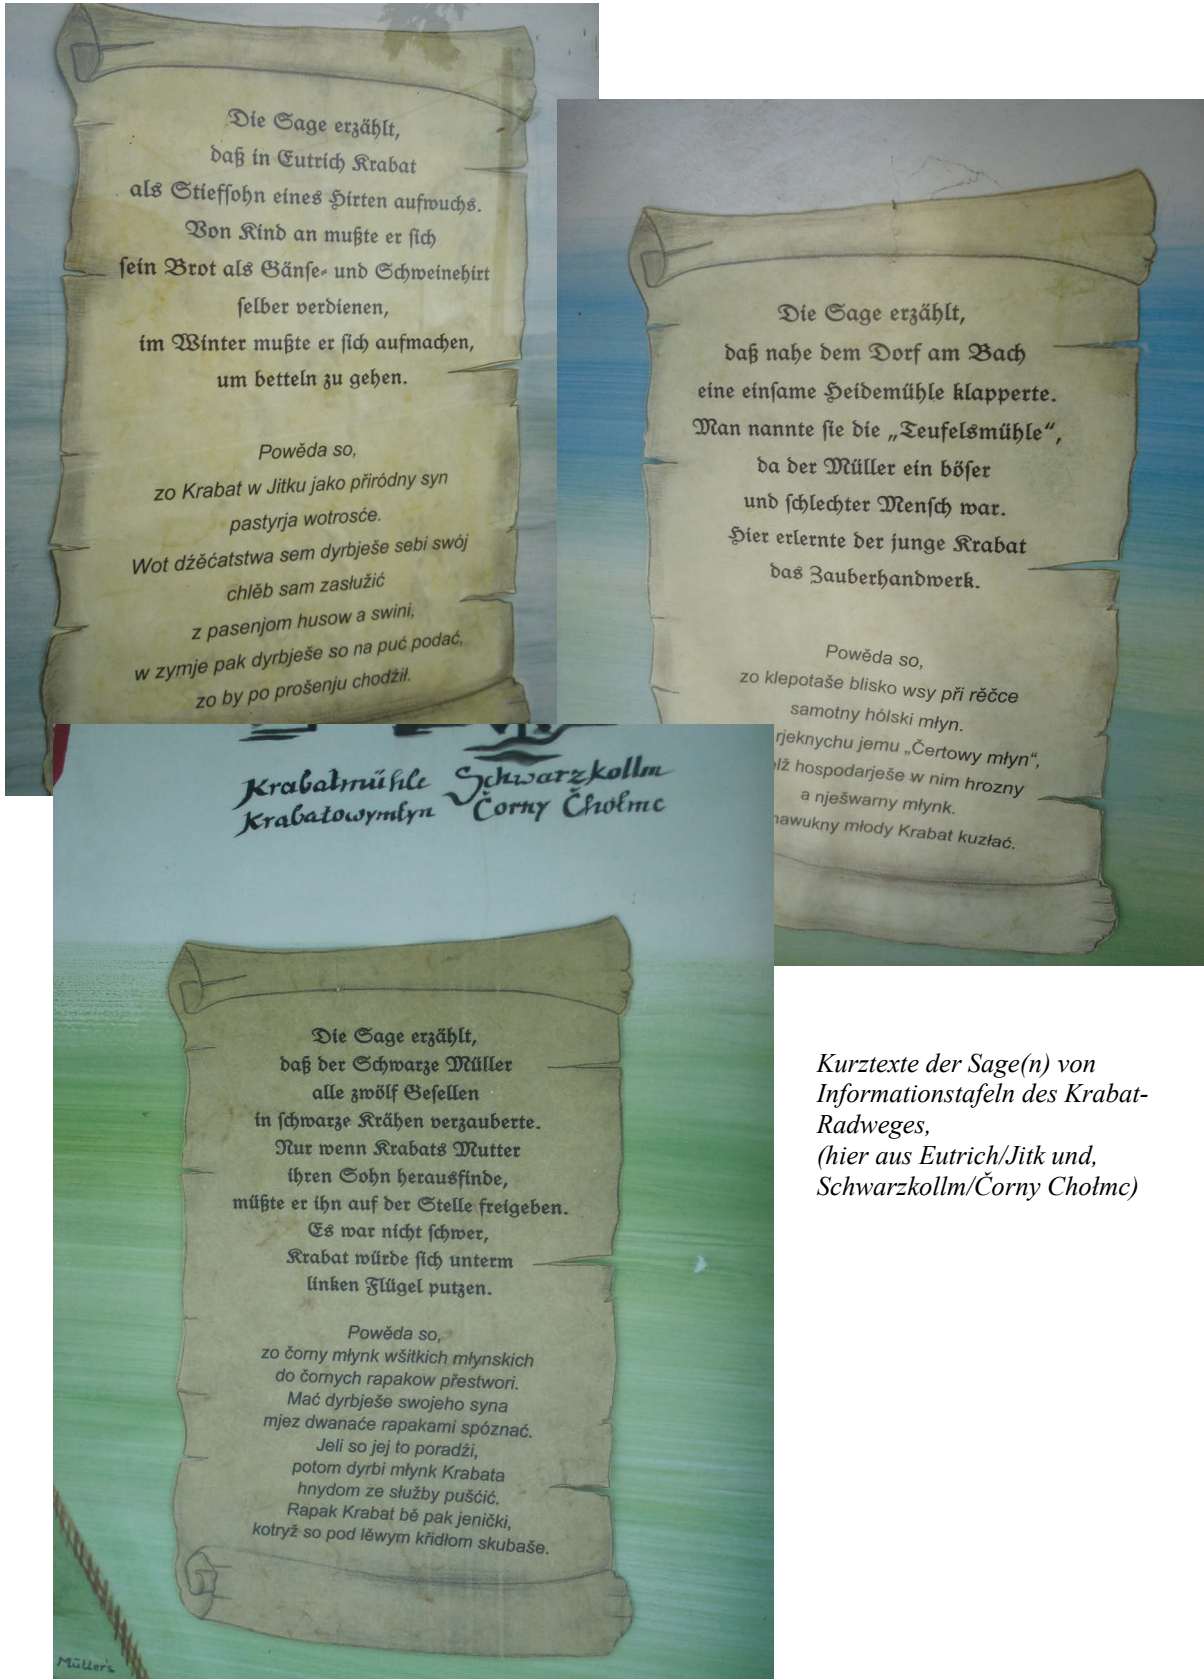 Die Sage erzählt,
daß in Eutrich Krabat
als Stiefsohn eines Hirten aufwuchs.
Von Kind an mußte er sich
sein Brot als Gänse- und Schweinehirt
selber verdienen,
im Winter mußte er sich aufmachen,
um betteln zu gehen.
Powěda so,
zo Krabat w Jitku jako přiródny syn
pastyrja wotrosće.
Wot dźěćatstwa sem dyrbješe sebi swój
chlěb sam zasłužić
z pasenjom husow a swini,
w zymje pak dyrbješe so na puć podać,
zo by po prošenju chodźił.
Die Sage erzählt,
daß nahe dem Dorf am Bach
eine einsame Heidemühle klapperte.
Man nannte sie die „Teufelsmühle“,
da der Müller ein böser
und schlechter Mensch war.
Hier erlernte der junge Krabat
das Zauberhandwerk.
Powěda so,
zo klepotaše blisko wsy při rěčce
samotny hólski młyn.
rjeknychu jemu „Čertowy młyn“,
hospodarješe w nim hrozny
a nješwarny młynk.
młody Krabat kuzłać.
Krabatmühle Schwarzkollm
Krabatowymłyn Čorny Chołmc
Die Sage erzählt,
daß der Schwarze Müller
alle zwölf Gesellen
in schwarze Krähen verzauberte.
Nur wenn Krabats Mutter
ihren Sohn herausfinde,
müßte er ihn auf der Stelle freigeben.
Es war nicht schwer,
Krabat würde sich unterm
linken Flügel putzen.
Powěda so,
zo čorny młynk wšitkich młynskich
do čornych rapakow přestwori.
Mać dyrbješe swojeho syna
mjez dwanaće rapakami spóznać.
Jeli so jej to poradźi,
potom dyrbi młynk Krabata
hnydom ze służby pušćić.
Rapak Krabat bě pak jenički,
kotryž so pod lěwym křidłom skubaše.
Müller's
Kurztexte der Sage(n) von
Informationstafeln des Krabat-
Radweges,
(hier aus Eutrich/Jitk und,
Schwarzkollm/Čorny Chołmc)